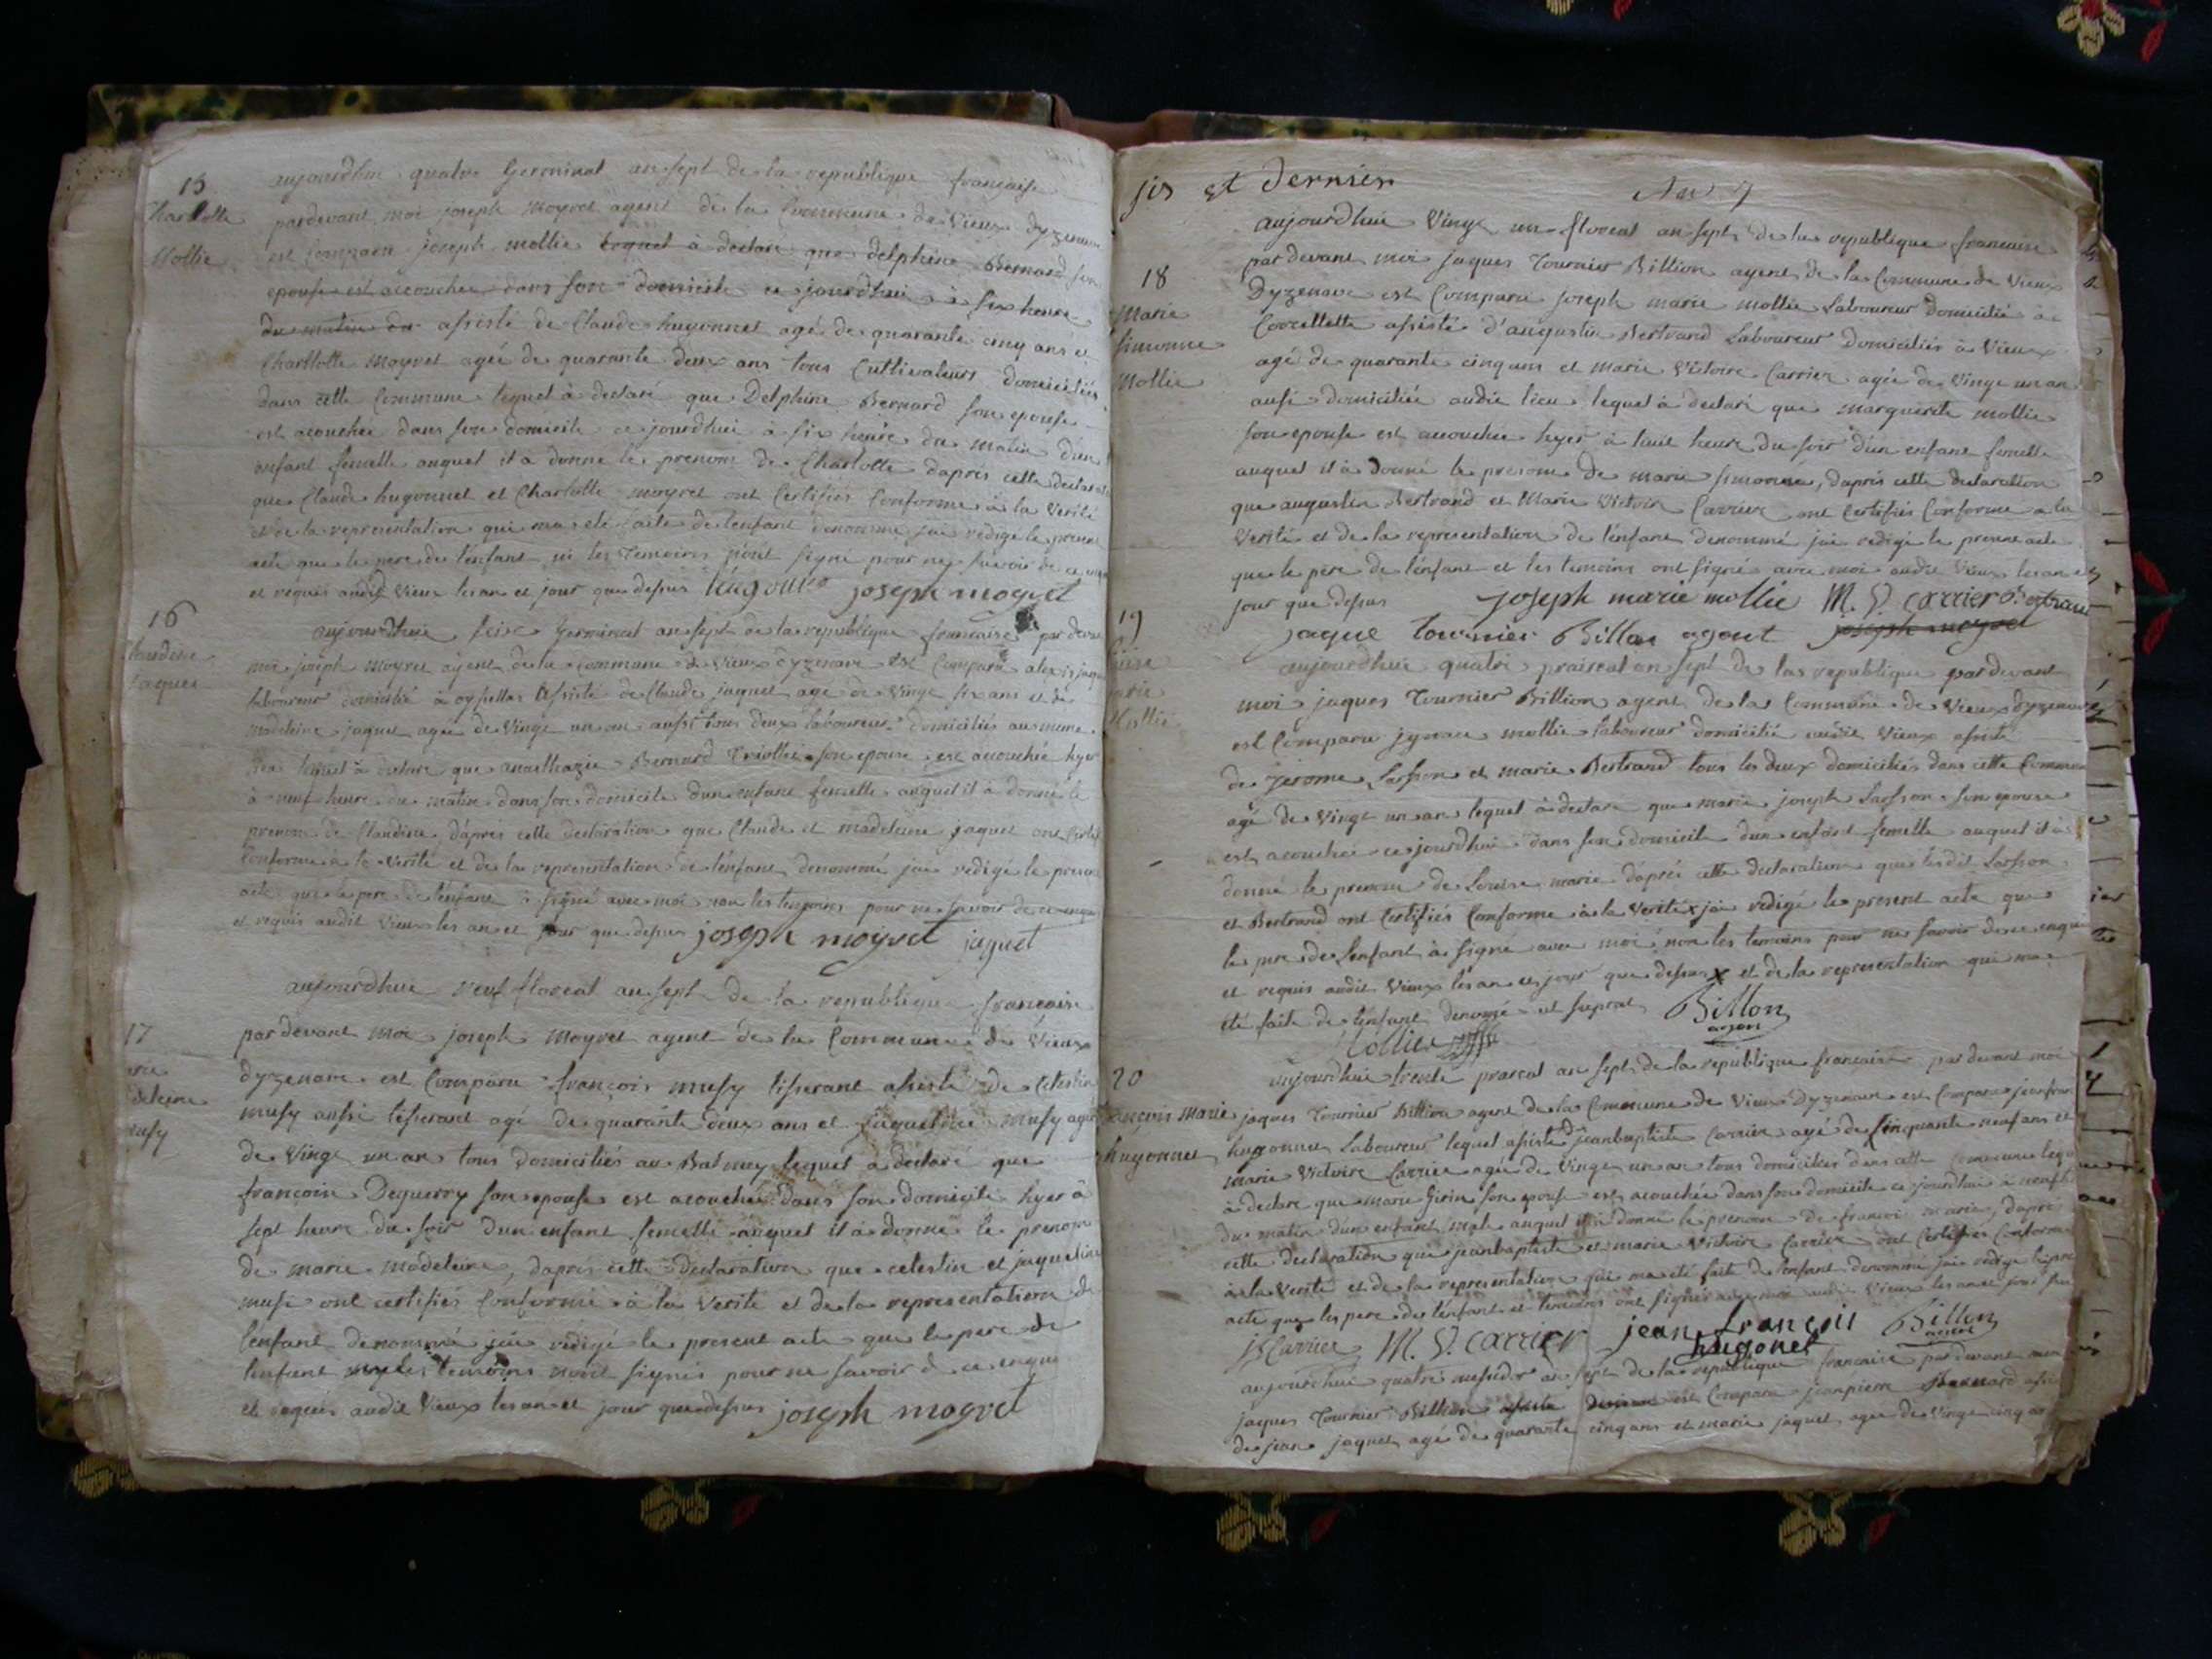 15
Charlotte
Mollie
aujourdhui quatre Germinal an sept de la republique française
pardevant moi joseph moyret agent de la Commune de Vieux dyzenave
est comparu joseph mollie lequel à declaré que delphine Bernard son
epouse est accouchée dans son domicile ce jourdhui à six heure
du matin du assisté de Claude hugonnet agé de quarante cinq ans et
Charllotte moyret agée de quarante deux ans tous Cultivateurs domiciliés
dans cette Commune lequel à declaré que Delphine Bernard son epouse
est acouchée dans son domicile ce jourdhui à six heure du matin d'un
enfant femelle auquel il a donné le prenom de Charlotte daprès cette declarat
que Claude hugonnet et Charlotte moyret ont Certifiés Conforme à la Verité
et de la representation qui ma été faite de lenfant denommé jai redigé le present
acte que le pere de l'enfant ni les temoins n'ont signé pour ne savoir de ce enqui
et requis audit Vieux les an et jour que dessus joseph moyret
16
Claudine
jaques
aujourdhui seize Germinal an sept de la republique francaise par devant
moi joseph moyret agent de la Commune de Vieux dyzenave est Comparu alexis jaqu
laboureur domicilié à oyssellas assisté de Claude jaquet agé de Vingt six ans et de
madeleine jaquet agée de Vingt un an aussi tous deux laboureur domiciliés au meme
lieu lequel à declaré que Bernard son epouse est acouchée hyer
à neuf heure du matin dans son domicile dun enfant femelle auquel il à donné le
prenom de Claudine d'apres cette declaration que Claude et madeleine jaquet ont Certif
Conforme à la Verité et de la representation de l'enfant denommé jai redigé le present
acte que le pere de l'enfant à signé avec moi non les temoins pour ne savoir de ce enqui
et requis audit Vieux les an et jour que dessus joseph moyret jaquet
17
deleine
musy
aujourdhui neuf floreal an sept de la republique francaise
par devant moi joseph moyret agent de la Commune de Vieux
dyzenave est Comparu françois musy tisserant assisté de Celestin
musy aussi tisserant agé de quarante deux ans et jaqueline musy agée
de Vingt un an tous domiciliés au Balmey lequel à declaré que
françoise Dequerry son epouse est acouchée dans son domicile hyer à
sept heure du soir dun enfant femelle auquel il à donné le prenom
de marie madeleine, dapres cette Declaration que celestin et jaqueline
musi ont certifiés Conforme à la Verité et de la representation de
lenfant denommé jai redigé le present acte que le pere de
lenfant les temoins nont signés pour ne savoir d ce enqui
et requis audit Vieux les an et jour que dessus joseph moyret
six et Dernier
An 7
18
Marie
simonne
Mollie
aujourdhui Vingt un floreal an sept de la republique francaise
par devant moi jaques Tournier Billion agent de la Commune de Vieux
Dyzenave est Comparu joseph marie mollie Laboureur domicilié à
Corcellette assisté d'augustin Bertrand Laboureur domiciliés à Vieux
agé de quarante cinq ans et marie Victoire Carrier agée de Vingt un an
ausi domiciliée audit lieu lequel à declaré que marguerite mollie
son epouse est acouchée hyer à huit heure du soir d'un enfant femelle
auquel il à donné le prenom de marie simonne, daprès cette declaration
que augustin Bertrand et Marie Victoire Carrier ont Certifiés Conforme à la
Verité et de la representation de l'enfant denommé jai redigé le present acte
que le père de lenfant et les temoins ont signé avec moi audit Vieux les an et
jour que dessus joseph marie mollie M. V. carrier Bertrand
jaque tournier Billon agent joseph moyret
19
Louise
marie
Mollie
aujourdhui quatre praireal an sept de la republique pardevant
moi jaques Tournier Billion agent de la Commune de Vieux dyzenave
est Comparu ignace mollie laboureur domicilié audit Vieux assisté
de jerome Lasson et marie Bertrand tous les deux domiciliés dans cette Commune
agé de Vingt un an lequel à declaré que marie joseph Lasson son epouse
est acouchée ce jourdhui dans son domicile dun enfant femelle auquel il à
donné le prenom de Louise marie daprès cette declaration que lesdit Lasson
et Bertrand ont Certifiés Conforme à la Verité x jai redigé le present acte que
le pere de lenfant à signé avec moi non les temoins pour ne savoir de ce enqui
et requis audit Vieux les an et jour que dessus x et de la representation qui ma
été faite de lenfant denommé ut supra Billon
agent
Mollie
20
françois marie
hugonnet
aujourdhui trente prareal an sept de la republique francaise par devant moi
jaques Tournier Billion agent de la Commune de Vieux Dyzenave est Comparu jean fran
hugonnet Laboureur lequel assisté de jeanbaptiste Carrier agé de Cinquante neuf ans et
marie Victoire Carrier agée de Vingt un an tous domiciliés dans cette Commune lequ
à declaré que marie Girin son epouse est acouchée dans son domicile ce jourdhui à neuf h
du matin d'un enfant male auquel il à donné le prenom de françoi marie, dapres
cette declaration que jeanbaptiste et marie Victoire Carrier ont Certifiés Conforme
à la Verité et de la representation qui ma été faite de lenfant denommé jai redigé le pre
acte que le pere de lenfant et temoins ont signés avec moi audit Vieux les an et jour que
Carrier M. V. carrier jean françois Billon
hugonet agent
aujourdhui quatre messidor an sept de la republique francaise par devant moi
jaques Tournier Billion est Comparu jeanpierre Bernard assis
de jean jaquet agé de quarante cinq ans et marie jaquet agée de Vingt cinq an